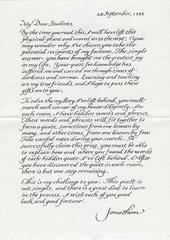 22 September, 1988
My Dear Students,
By the time you read this, I will have left this
physical plane and moved on to the next. You
may wonder why I've chosen you to be the
potential recipients of my fortune. The simple
answer: you have brought me the greatest joy
in my life. Your quest for knowledge has
inspired me and carried me through times of
darkness and sorrow. Learning and teaching
are my true friends, and I hope to pass these
gifts on to you.
To solve the mystery I've left behind, you must
search each corner of my house diligently. In
each room, I have hidden words and phrases.
These words and phrases will fit together to
form a quote, sometimes from one known by
many, and other times, from one known by few.
Take careful notes during your search. To
successfully claim this prize, you must be able
to explain how and where you found the words
of each hidden quote I've left behind. After
you have discovered the quote in each room,
there is but one step remaining.
This is my challenge to you. This quest is
not simple, and there is a great deal to learn
in the process. I wish each of you good
luck and good fortune.
Jonathan